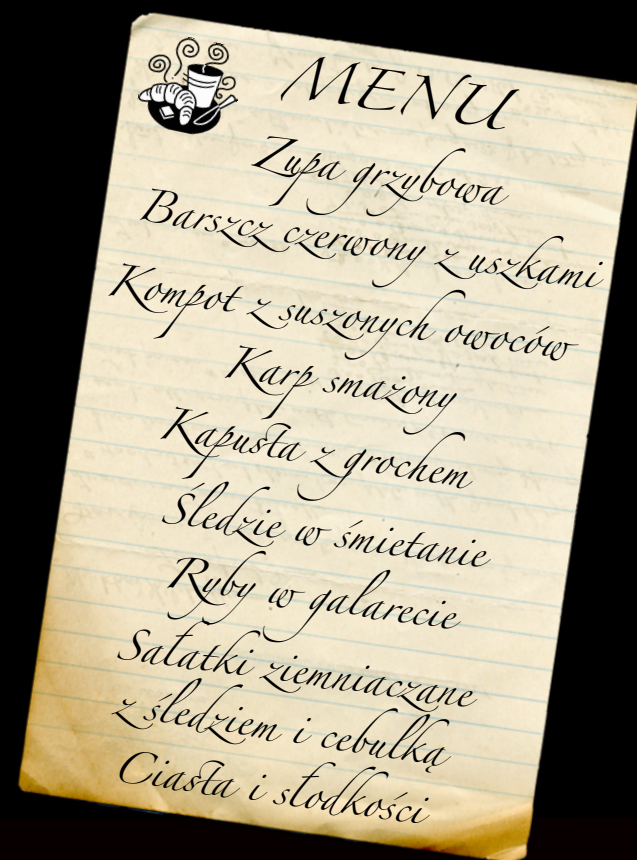 MENU
Zupa grzybowa
Barszcz czerwony z uszkami
Kompot z suszonych owoców
Karp smażony
Kapusta z grochem
Śledzie w śmietanie
Ryby w galarecie
Sałatki ziemniaczane
z śledziem i cebulką
Ciasta i słodkości